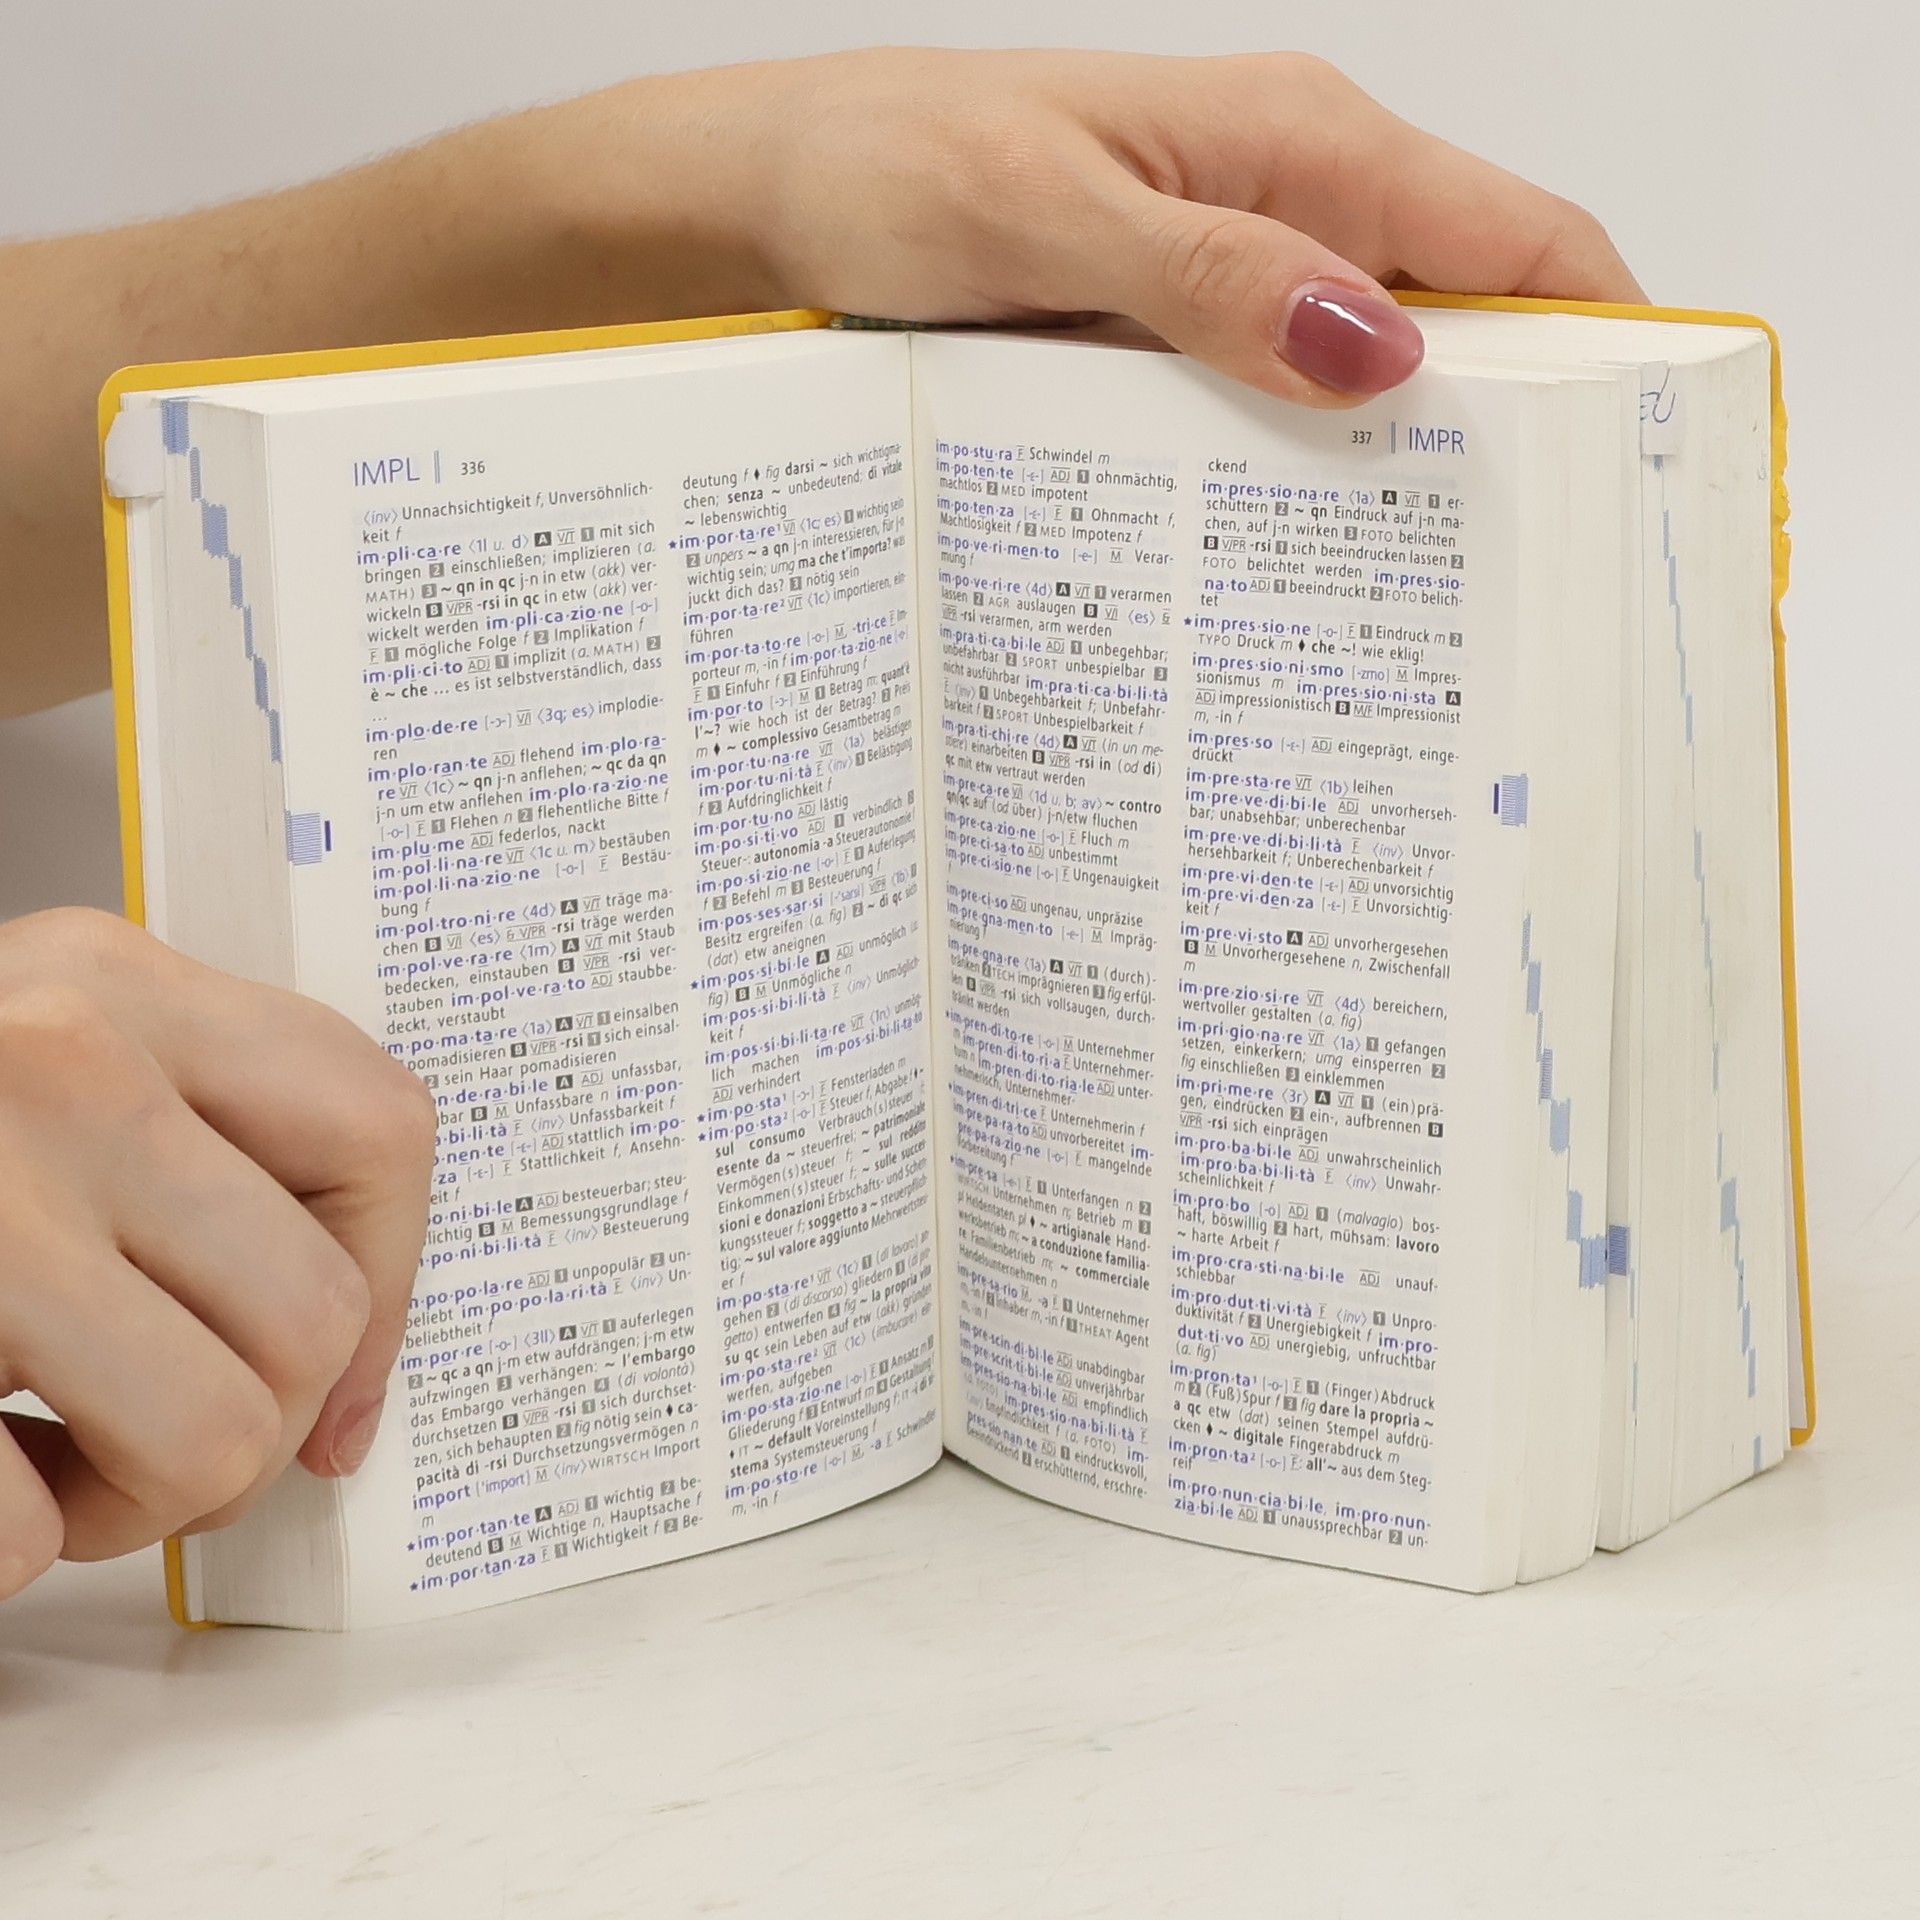 IMPL 336
⟨inv⟩ Unnachsichtigkeit f, Unversöhnlich-
keit f
im·pli·ca·re ⟨1l u. d⟩ A V/T 1 mit sich
bringen 2 einschließen; implizieren (a.
MATH) 3 ~ qn in qc j-n in etw (akk) ver-
wickeln B V/PR -rsi in qc in etw (akk) ver-
wickelt werden im·pli·ca·zio·ne [-o-]
F 1 mögliche Folge f 2 Implikation f
im·pli·ci·to ADJ 1 implizit (a. MATH) 2
è ~ che ... es ist selbstverständlich, dass
...
im·plo·de·re [-ɔ-] V/I ⟨3q; es⟩ implodie-
ren
im·plo·ran·te ADJ flehend im·plo·ra-
re V/T ⟨1c⟩ ~ qn j-n anflehen; ~ qc da qn
j-n um etw anflehen im·plo·ra·zio·ne
[-o-] F 1 Flehen n 2 flehentliche Bitte f
im·plu·me ADJ federlos, nackt
im·pol·li·na·re V/T ⟨1c u. m⟩ bestäuben
im·pol·li·na·zio·ne [-o-] F Bestäu-
bung f
im·pol·tro·ni·re ⟨4d⟩ A V/T träge ma-
chen B V/I ⟨es⟩ & V/PR -rsi träge werden
im·pol·ve·ra·re ⟨1m⟩ A V/T mit Staub
bedecken, einstauben B V/PR -rsi ver-
stauben im·pol·ve·ra·to ADJ staubbe-
deckt, verstaubt
im·po·ma·ta·re ⟨1a⟩ A V/T 1 einsalben
pomadisieren B V/PR -rsi 1 sich einsal-
2 sein Haar pomadisieren
n·de·ra·bi·le A ADJ unfassbar,
bar B M Unfassbare n im·pon-
a·bi·li·tà F ⟨inv⟩ Unfassbarkeit f
o·nen·te [-ɛ-] ADJ stattlich im·po-
za [-ɛ-] F Stattlichkeit f, Ansehn-
eit f
o·ni·bi·le A ADJ besteuerbar; steu-
lichtig B M Bemessungsgrundlage f
po·ni·bi·li·tà F ⟨inv⟩ Besteuerung
m·po·po·la·re ADJ 1 unpopulär 2 un-
beliebt im·po·po·la·ri·tà F ⟨inv⟩ Un-
beliebtheit f
im·por·re [-o-] ⟨3ll⟩ A V/T 1 auferlegen
2 ~ qc a qn j-m etw aufdrängen; j-m etw
aufzwingen 3 verhängen: ~ l'embargo
das Embargo verhängen 4 (di volontà)
durchsetzen B V/PR -rsi 1 sich durchset-
zen, sich behaupten 2 fig nötig sein ♦ ca-
pacità di -rsi Durchsetzungsvermögen n
import ['import] M ⟨inv⟩ WIRTSCH Import
m
★im·por·tan·te A ADJ 1 wichtig 2 be-
deutend B M Wichtige n, Hauptsache f
★im·por·tan·za F 1 Wichtigkeit f 2 Be-
deutung f ♦ fig darsi ~ sich wichtigma-
chen; senza ~ unbedeutend; di vitale
~ lebenswichtig
★im·por·ta·re¹ V/I ⟨1c; es⟩ 1 wichtig sein
2 unpers ~ a qn j-n interessieren, für j-n
wichtig sein; umg ma che t'importa? was
juckt dich das? 3 nötig sein
im·por·ta·re² V/T ⟨1c⟩ importieren, ein-
führen
im·por·ta·to·re [-o-] M, -tri·ce F Im-
porteur m, -in f im·por·ta·zio·ne [-o-]
F 1 Einfuhr f 2 Einführung f
im·por·to [-ɔ-] M 1 Betrag m: quant'è
l'~? wie hoch ist der Betrag? 2 Preis
m ♦ ~ complessivo Gesamtbetrag m
im·por·tu·na·re V/T ⟨1a⟩ belästigen
im·por·tu·ni·tà F ⟨inv⟩ 1 Belästigung
f 2 Aufdringlichkeit f
im·por·tu·no ADJ lästig
im·po·si·ti·vo ADJ 1 verbindlich 2
Steuer-: autonomia -a Steuerautonomie f
im·po·si·zio·ne [-o-] F 1 Auferlegung
f 2 Befehl m 3 Besteuerung f
im·pos·ses·sar·si [-'sarsi] V/PR ⟨1b⟩ 1
Besitz ergreifen (a. fig) 2 ~ di qc sich
(dat) etw aneignen
★im·pos·si·bi·le A ADJ unmöglich (a.
fig) B M Unmögliche n
im·pos·si·bi·li·tà F ⟨inv⟩ Unmöglich-
keit f
im·pos·si·bi·li·ta·re V/T ⟨1n⟩ unmög-
lich machen im·pos·si·bi·li·ta·to
ADJ verhindert
★im·po·sta¹ [-ɔ-] F Fensterladen m
★im·po·sta² [-o-] F Steuer f, Abgabe f ♦ ~
sul consumo Verbrauch(s)steuer f;
esente da ~ steuerfrei; ~ patrimoniale
Vermögen(s)steuer f; ~ sul reddito
Einkommen(s)steuer f; ~ sulle succes-
sioni e donazioni Erbschafts- und Schen-
kungssteuer f; soggetto a ~ steuerpflich-
tig; ~ sul valore aggiunto Mehrwertsteu-
er f
im·po·sta·re¹ V/T ⟨1c⟩ 1 (di lavoro) an-
gehen 2 (di discorso) gliedern 3 (di pro-
getto) entwerfen 4 fig ~ la propria vita
su qc sein Leben auf etw (akk) gründen
im·po·sta·re² V/T ⟨1c⟩ (imbucare) ein-
werfen, aufgeben
im·po·sta·zio·ne [-o-] F 1 Ansatz m 2
Gliederung f 3 Entwurf m 4 Gestaltung f
♦ IT ~ default Voreinstellung f; IT -i di si-
stema Systemsteuerung f
im·po·sto·re [-o-] M, -a F Schwindler
m, -in f
337 IMPR
im·po·stu·ra F Schwindel m
im·po·ten·te [-ɛ-] ADJ 1 ohnmächtig,
machtlos 2 MED impotent
im·po·ten·za [-ɛ-] F 1 Ohnmacht f,
Machtlosigkeit f 2 MED Impotenz f
im·po·ve·ri·men·to [-e-] M Verar-
mung f
im·po·ve·ri·re ⟨4d⟩ A V/T 1 verarmen
lassen 2 AGR auslaugen B V/I ⟨es⟩ &
V/PR -rsi verarmen, arm werden
im·pra·ti·ca·bi·le ADJ 1 unbegehbar;
unbefahrbar 2 SPORT unbespielbar 3
nicht ausführbar im·pra·ti·ca·bi·li·tà
F ⟨inv⟩ 1 Unbegehbarkeit f; Unbefahr-
barkeit f 2 SPORT Unbespielbarkeit f
im·pra·ti·chi·re ⟨4d⟩ A V/T (in un me-
stiere) einarbeiten B V/PR -rsi in (od di)
qc mit etw vertraut werden
im·pre·ca·re V/I ⟨1d u. b; av⟩ ~ contro
qn/qc auf (od über) j-n/etw fluchen
im·pre·ca·zio·ne [-o-] F Fluch m
im·pre·ci·sa·to ADJ unbestimmt
im·pre·ci·sio·ne [-o-] F Ungenauigkeit
f
im·pre·ci·so ADJ ungenau, unpräzise
im·pre·gna·men·to [-e-] M Impräg-
nierung f
im·pre·gna·re ⟨1a⟩ A V/T 1 (durch)-
tränken 2 TECH imprägnieren 3 fig erfül-
len B V/PR -rsi sich vollsaugen, durch-
tränkt werden
★im·pren·di·to·re [-o-] M Unternehmer
m im·pren·di·to·ri·a F Unternehmer-
tum n im·pren·di·to·ria·le ADJ unter-
nehmerisch, Unternehmer-
★im·pren·di·tri·ce F Unternehmerin f
im·pre·pa·ra·to ADJ unvorbereitet im-
pre·pa·ra·zio·ne [-o-] F mangelnde
Vorbereitung f
★im·pre·sa [-e-] F 1 Unterfangen n 2
WIRTSCH Unternehmen n; Betrieb m 3
pl Heldentaten pl ♦ ~ artigianale Hand-
werksbetrieb m; ~ a conduzione familia-
re Familienbetrieb m; ~ commerciale
Handelsunternehmen n
im·pre·sa·rio M, -a F 1 Unternehmer
m, -in f 2 Inhaber m, -in f 3 THEAT Agent
m, -in f
im·pre·scin·di·bi·le ADJ unabdingbar
im·pre·scrit·ti·bi·le ADJ unverjährbar
im·pres·sio·na·bi·le ADJ empfindlich
(a. FOTO) im·pres·sio·na·bi·li·tà F
⟨inv⟩ Empfindlichkeit f (a. FOTO) im-
pres·sio·nan·te ADJ 1 eindrucksvoll,
beeindruckend 2 erschütternd, erschre-
ckend
im·pres·sio·na·re ⟨1a⟩ A V/T 1 er-
schüttern 2 ~ qn Eindruck auf j-n ma-
chen, auf j-n wirken 3 FOTO belichten
B V/PR -rsi 1 sich beeindrucken lassen 2
FOTO belichtet werden im·pres·sio-
na·to ADJ 1 beeindruckt 2 FOTO belich-
tet
★im·pres·sio·ne [-o-] F 1 Eindruck m 2
TYPO Druck m ♦ che ~! wie eklig!
im·pres·sio·ni·smo [-zmo] M Impres-
sionismus m im·pres·sio·ni·sta A
ADJ impressionistisch B M/F Impressionist
m, -in f
im·pres·so [-ɛ-] ADJ eingeprägt, einge-
drückt
im·pre·sta·re V/T ⟨1b⟩ leihen
im·pre·ve·di·bi·le ADJ unvorherseh-
bar; unabsehbar; unberechenbar
im·pre·ve·di·bi·li·tà F ⟨inv⟩ Unvor-
hersehbarkeit f; Unberechenbarkeit f
im·pre·vi·den·te [-ɛ-] ADJ unvorsichtig
im·pre·vi·den·za [-ɛ-] F Unvorsichtig-
keit f
im·pre·vi·sto A ADJ unvorhergesehen
B M Unvorhergesehene n, Zwischenfall
m
im·pre·zio·si·re V/T ⟨4d⟩ bereichern,
wertvoller gestalten (a. fig)
im·pri·gio·na·re V/T ⟨1a⟩ 1 gefangen
setzen, einkerkern; umg einsperren 2
fig einschließen 3 einklemmen
im·pri·me·re ⟨3r⟩ A V/T 1 (ein)prä-
gen, eindrücken 2 ein-, aufbrennen B
V/PR -rsi sich einprägen
im·pro·ba·bi·le ADJ unwahrscheinlich
im·pro·ba·bi·li·tà F ⟨inv⟩ Unwahr-
scheinlichkeit f
im·pro·bo [-o] ADJ 1 (malvagio) bos-
haft, böswillig 2 hart, mühsam: lavoro
~ harte Arbeit f
im·pro·cra·sti·na·bi·le ADJ unauf-
schiebbar
im·pro·dut·ti·vi·tà F ⟨inv⟩ 1 Unpro-
duktivität f 2 Unergiebigkeit f im·pro-
dut·ti·vo ADJ unergiebig, unfruchtbar
(a. fig)
im·pron·ta¹ [-o-] F 1 (Finger)Abdruck
m 2 (Fuß)Spur f 3 fig dare la propria ~
a qc etw (dat) seinen Stempel aufdrü-
cken ♦ ~ digitale Fingerabdruck m
im·pron·ta² [-o-] F: all'~ aus dem Steg-
reif
im·pro·nun·cia·bi·le, im·pro·nun-
zia·bi·le ADJ 1 unaussprechbar 2 un-